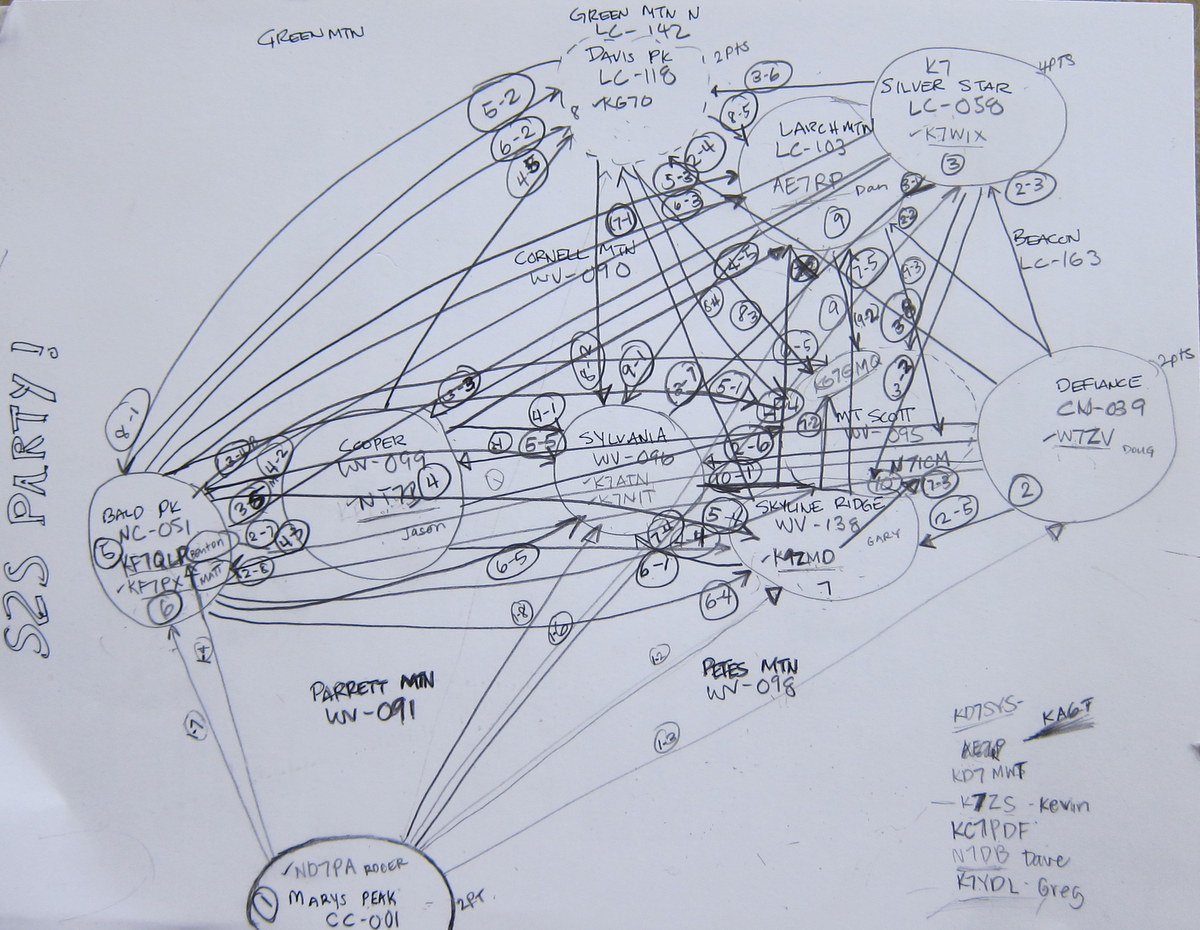 GREEN MTN
GREEN MTN N
LC-142
DAVIS PK
LC-118
✓KG7O
8
2PTS
3-6
K7
SILVER STAR
LC-058
✓K7WIX
3
4PTS
LARCH MTN
LC-103
AE7RP
Dan
9
5-2
6-2
8-5
2-4
5-3
6-3
7-1
2-3
BEACON
LC-163
CORNELL MTN
WV-090
4-5
7-5
9-3
5-4
8-3
9
9-2
3-2
S2S PARTY!
8-1
8-2
9-1
3-3
4-1
5-5
5-1
2-6
10-1
7-2
KG7EMQ
MT SCOTT
WV-095
N7ICM
7-3
2PTS
DEFIANCE
CM-039
✓W7ZV
DOUG
2
2-5
COOPER
WV-099
4
Jason
SYLVANIA
WV-096
✓K7ATN
✓K7NIT
SKYLINE RIDGE
WV-138
✓K9ZMD
7
GARY
BALD PK
NC-051
5
KF7QLR
Benton
✓KF7PX
MATT
6
4-2
2-7
4-3
2-8
6-5
6-1
6-4
1-8
1-6
1-2
1-3
1-4
1-7
PARRETT MTN
WV-091
PETES MTN
WV-098
✓ND7PA ROGER
1
MARYS PEAK
CC-001
2PT.
KD7SYS-
KA6T
KD7MWT
— K7ZS - Kevin
KC7PDF
N7DB Dave
K7YDL - Greg